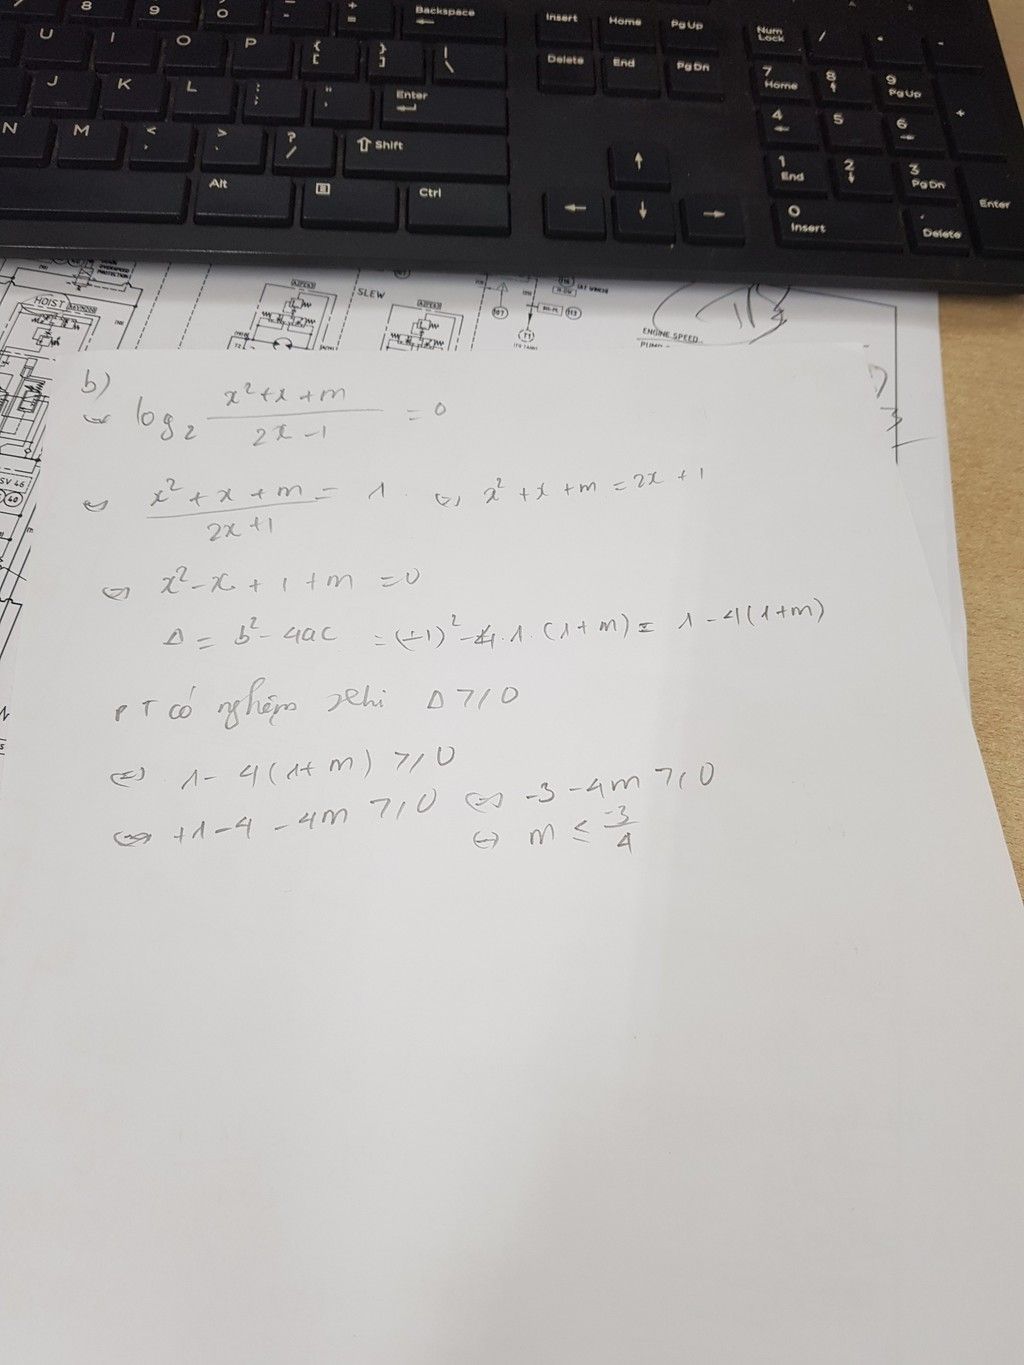 8 9 O - + = Backspace Insert Home Pg Up Num Lock / * -
U I O P { [ } ] | \ Delete End Pg Dn 7 Home 8 9 Pg Up +
J K L : ; " ' Enter 4 5 6
N M < , > . ? / Shift 1 End 2 3 Pg Dn Enter
Alt Ctrl 0 Insert . Delete
HOIST
SLEW
ENGINE SPEED
SV 46
40
b)
⇔ log₂ (x² + x + m)/(2x - 1) = 0
⇔ (x² + x + m)/(2x + 1) = 1 ⇔ x² + x + m = 2x + 1
⇔ x² - x + 1 + m = 0
Δ = b² - 4ac = (-1)² - 4.1.(1 + m) = 1 - 4(1+m)
PT có nghiệm khi Δ ≥ 0
⇔ 1 - 4(1 + m) ≥ 0
⇔ +1 - 4 - 4m ≥ 0 ⇔ -3 - 4m ≥ 0
⇔ m ≤ -3/4